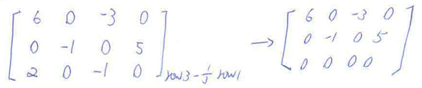 6 0 -3 0
0 -1 0 5
2 0 -1 0 row3 - 1/3 row1
→
6 0 -3 0
0 -1 0 5
0 0 0 0